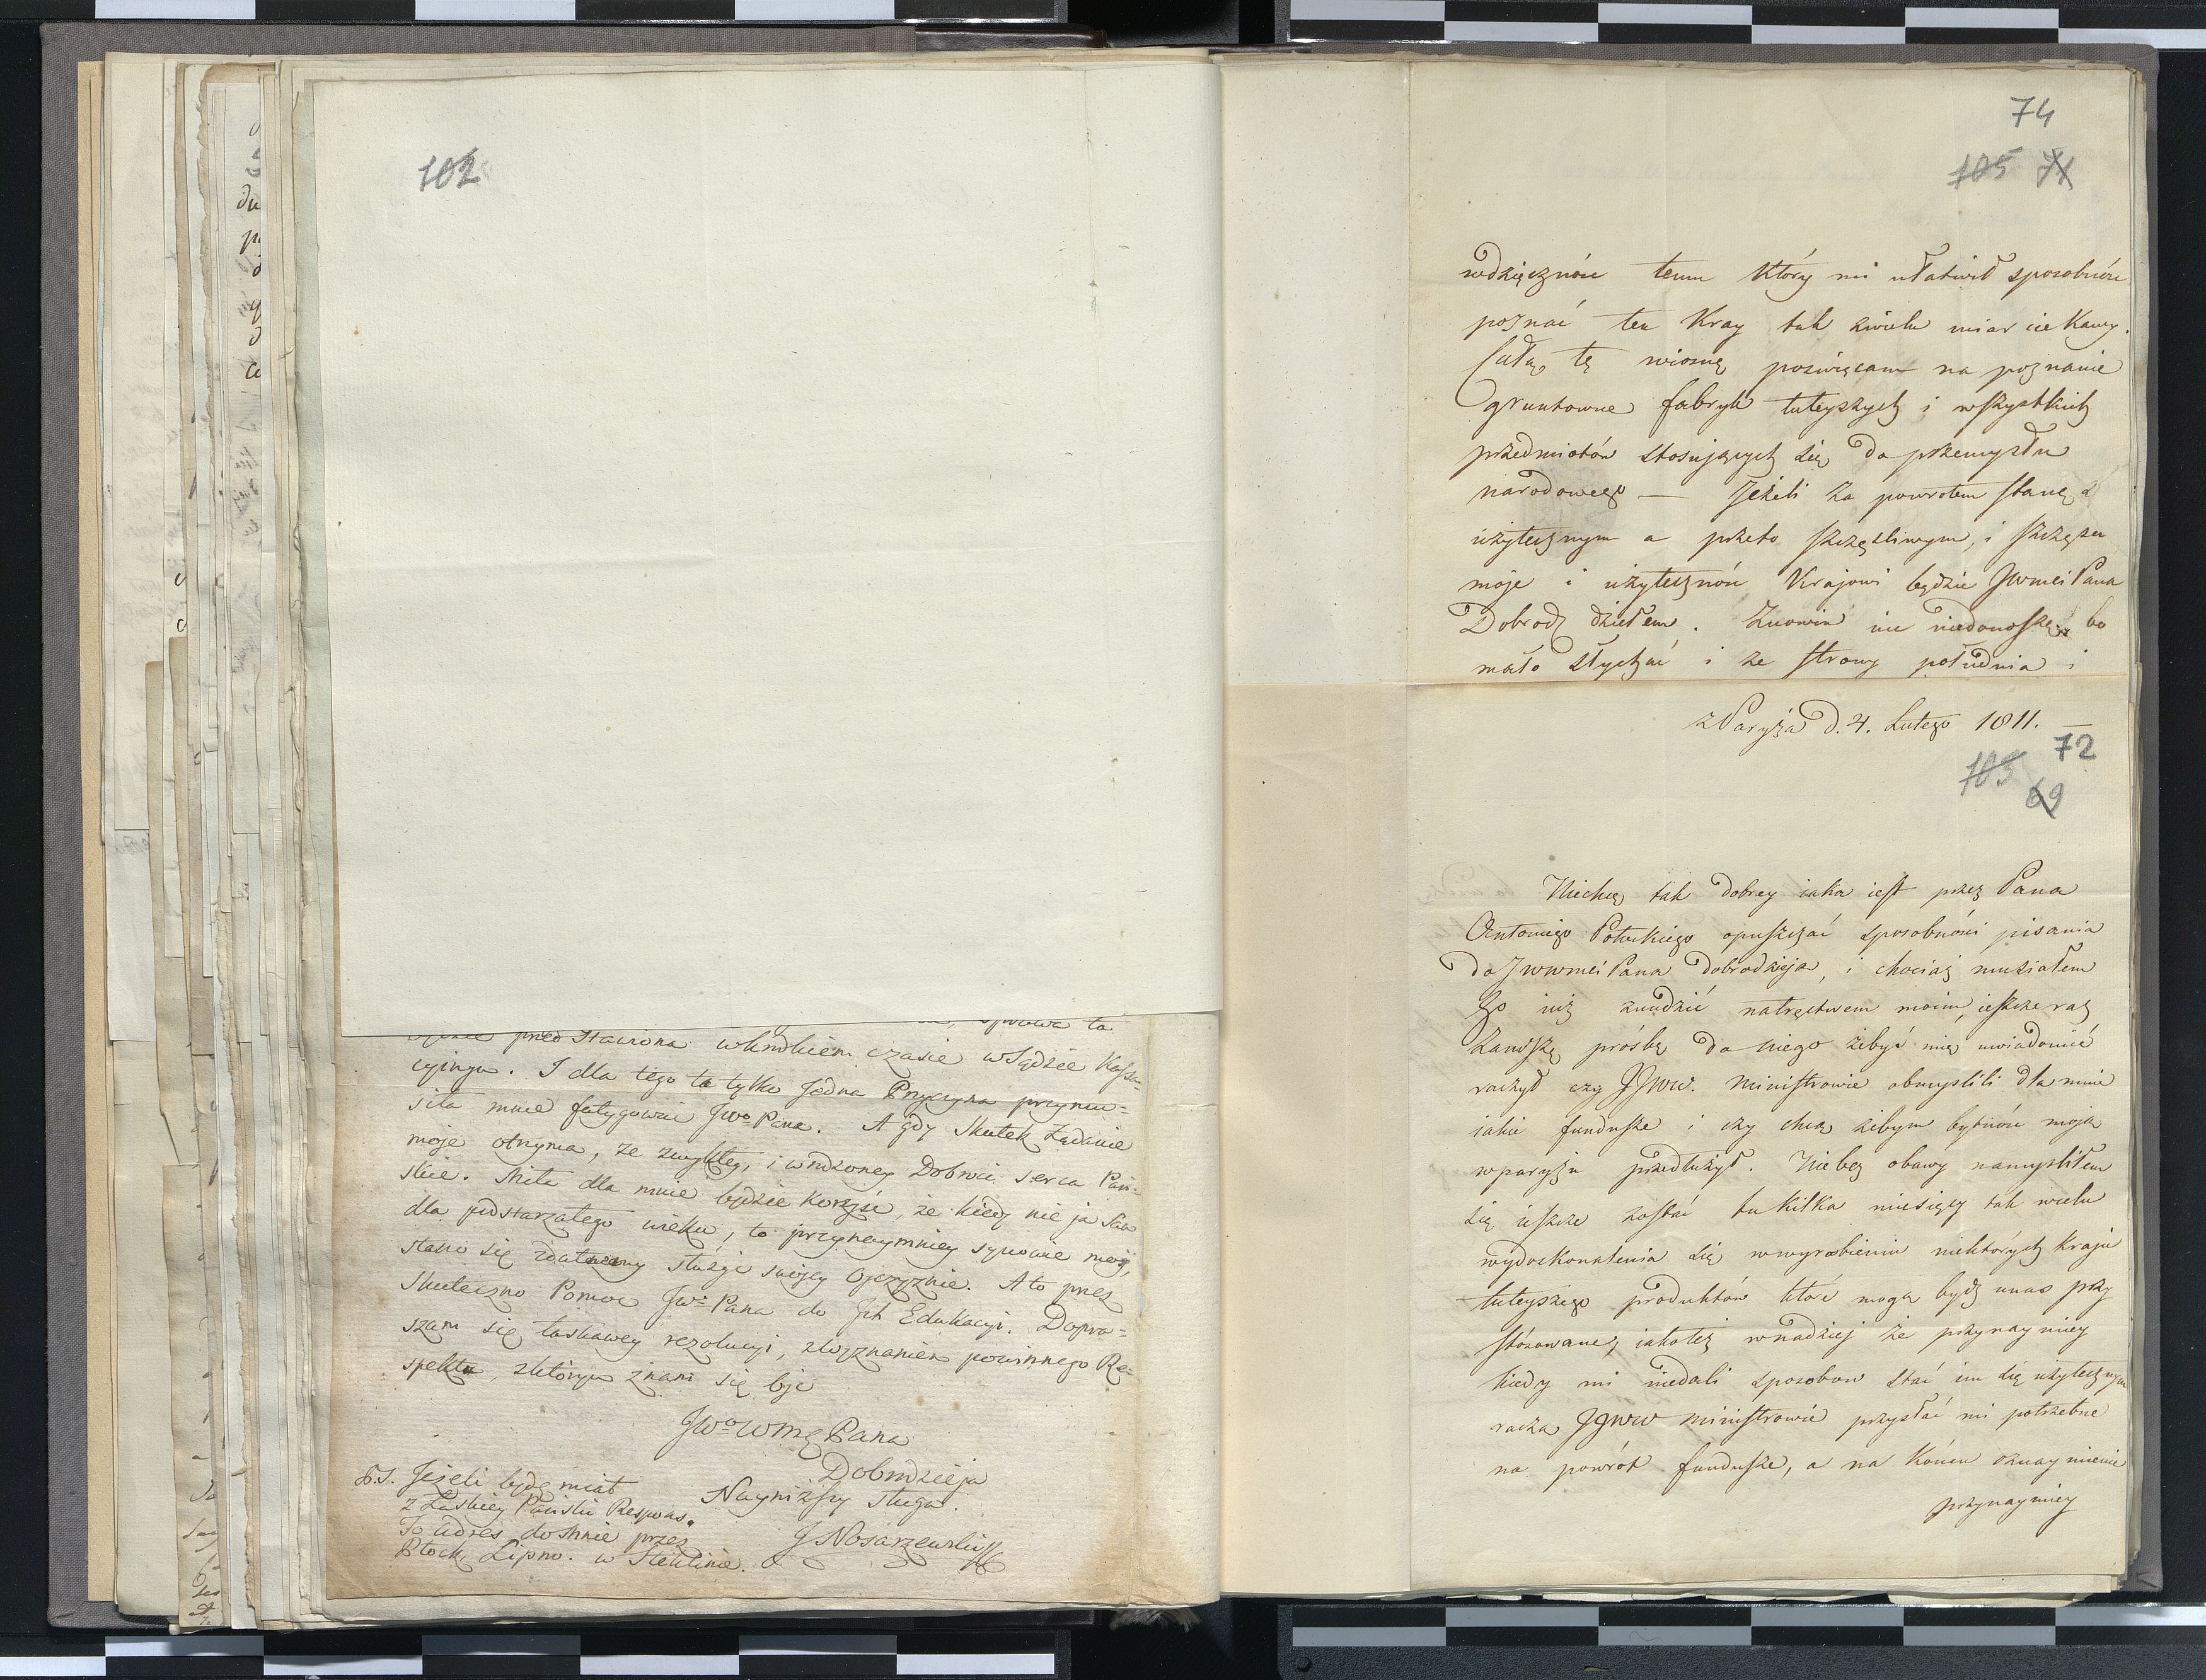 102
przed Stawiona wkrotkiem czasie w Sądzie Kassa-
cyjnym. I dla tego ta tylko Jedna Przyczyna przymu-
siła mnie fatygować JWo Pana. A gdy Skutek Żądanie
moje otrzyma, ze zwykłey, i wrodzoney Dobroci serca Pań-
skie. Miła dla mnie będzie korzyść, że kiedy nie ja sam
dla podstarzałego wieku, to przynaymniey synowie moji,
stano się zdatnemy służyć swojey Ojczyznie. A to przez
Skuteczno Pomoc JWo Pana do Jch Edukacyi. Dopra-
szam się łaskawey rezolucyi, z wyznaniem powinnego Re-
spektu, z którym znam się być
JWo WMę Pana
Dobrodzieja
Nayniższy sługa.
J Nosarzewski
P.S. Jeżeli będę miał
z Łaskiey Pański Respons.
To adres do mnie przez
Płock, Lipno. w Steklinie.
74
105 71
wdzięczność temu który mi ułatwił sposobność
poznać ten Kray tak zwielu miar ciekawy.
Całą tę wiosnę poswięcam na poznanie
gruntowne fabryk tuteyszych i wszystkich
przedmiotów stosujących się do przemysłu
narodowego — Jeżeli za powrotem stanę
użytecznym a przeto szczęśliwym, i szczęście
moje i użyteczność Krajowi będzie JWmci Pana
Dobrodz dziełem. Znowin nic niedonoszę bo
mało słychać i ze strony południa i
z Paryża d. 4. Lutego 1811. —
72
105
69
Niechcę tak dobrey iaka iest przez Pana
Antoniego Potockiego opuszczać sposobności pisania
do JWWmci Pana Dobrodzieja, i chociaż musiałem
Go iuż znudzić natręctwem moim, ieszcze raz
zanoszę prośbę do niego żebyś mię uwiadomić
raczył czy JJWW. Ministrowie obmyslili dla mnie
iakie fundusze i czy chcą żebym bytność moją
wparyżu przedłużył. Nie bez obawy namysliłem
się ieszcze zostać tu kilka miesięcy tak wielu
wydoskonalenia się wwyrobieniu niektórych kraju
tuteyszego produktów któré mogą bydź unas przy
stosowane, iakoteż wnadzieji że przynaymniey
kiedy mi niedali sposobow stać im się użytecznym
raczą JJWW Ministrowie przysłać mi potrzebne
na powrót fundusze, a na końcu oznaymienie
przynaymniey